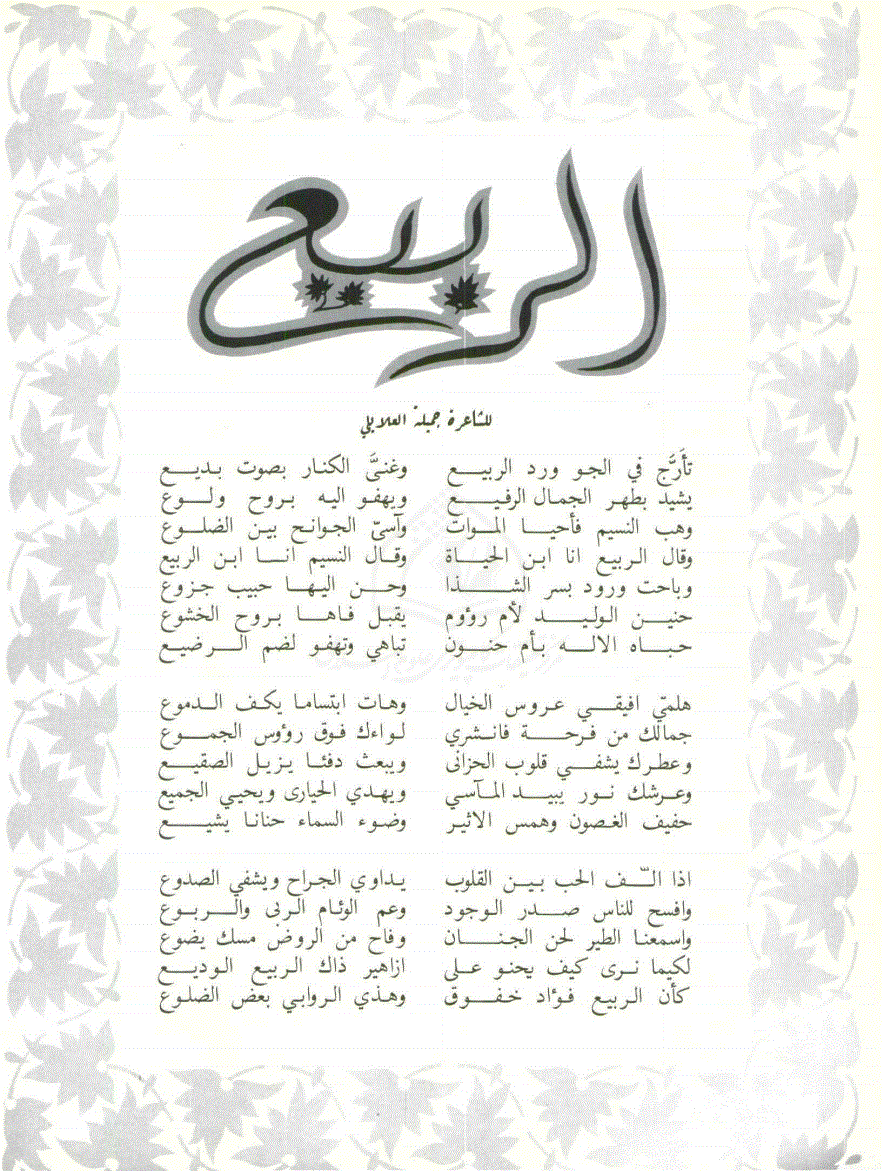 الربيع
للشاعرة جميلة العلايلي
تأرَّج في الجو ورد الربيـــع وغنىَّ الكنار بصوت بديـــع
يشيد بطهر الجمال الرفيـــع ويهفو اليه بروح ولـــوع
وهب النسيم فأحيـــا المـوات وآسىّ الجوانح بين الضلـــوع
وقال الربيع انا ابن الحيـاة وقـال النسيم انـــا ابن الربيع
وباحت ورود بسر الشـــذا وحـــن اليهـــا حبيب جزوع
حنيـــن الوليـــد لأم رؤوم يقبل فـاهـــا بروح الخشوع
حبـــاه الالـــه بـأم حنـــون تباهي وتهفو لضم الـــرضيـع
هلميّ افيقـــي عروس الخيال وهـات ابتسامـا يكـف الـدموع
جمالك من فرحـــة فانشري لـواءك فـوق رؤوس الجمـــوع
وعطـرك يشفـــي قلوب الحزانى ويبعث دفئـا يزيـل الصقيـــع
وعـرشك نـــور يبيـــد المـآسي ويهدي الحيارى ويحيي الجميع
حفيف الغصون وهمس الاثيـر وضوء السماء حنانـا يشيـــع
اذا الـــّف الحب بيـن القلوب يـداوي الجراح ويشفي الصدوع
وافسح للناس صـــدر الـوجود وعم الوئـام الربى والـــربـوع
واسمعنـا الطير لحن الجنـــان وفـاح من الروض مسك يضوع
لكيما نـرى كيف يحنو علـى ازاهير ذاك الـربيع الـوديـــع
كأن الـربيع فـؤاد خفـــوق وهـذي الـروابي بعض الضلوع